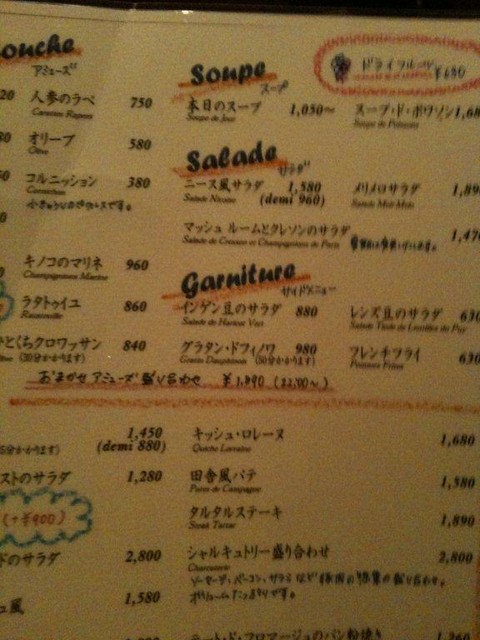 ouche
アミューズ
20 人参のラペ 750
Carottes Rapees
80 オリーブ 580
Olive
コルニッション 380
Cornichon
小さゅうりのピクルスです。
キノコのマリネ 960
Champignons Marine
ラタトゥイユ 860
Ratatouille
ひとくちクロワッサン 840
(30分かかります)
おまかせ アミューズ盛り合わせ ¥1,890 (22:00〜)
Soupe
スープ
ドライフルーツ ¥630
本日のスープ 1,050〜
Soupe du Jour
スープ・ド・ポワソン 1,68
Soupe de Poisson
Salade
サラダ
ニース風サラダ 1,580
Salade Nicoise (demi 960)
メリメロサラダ 1,89
Salade Meli-Melo
マッシュルームとクレソンのサラダ 1,47
Salade de Cresson et Champignons de Paris
Garniture
サイドメニュー
インゲン豆のサラダ 880
Salade de Haricot Vert
レンズ豆のサラダ 630
Salade Tiede de Lentilles du Puy
グラタン・ドフィノワ 980
Gratin Dauphinois (30分かかります)
フレンチフライ 630
Pommes Frites
5分かかります)
1,450
(demi 880)
ストのサラダ 1,280
(+¥900)
ドのサラダ 2,800
ュ風 1,580
キッシュ・ロレーヌ 1,680
Quiche Lorraine
田舎風パテ 1,580
Pate de Campagne
タルタルステーキ 1,890
Steak Tartar
シャルキュトリー盛り合わせ 2,800
Charcuterie
ソーセージ、ベーコン、サラミ など 豚肉の
ボリュームたっぷりです。